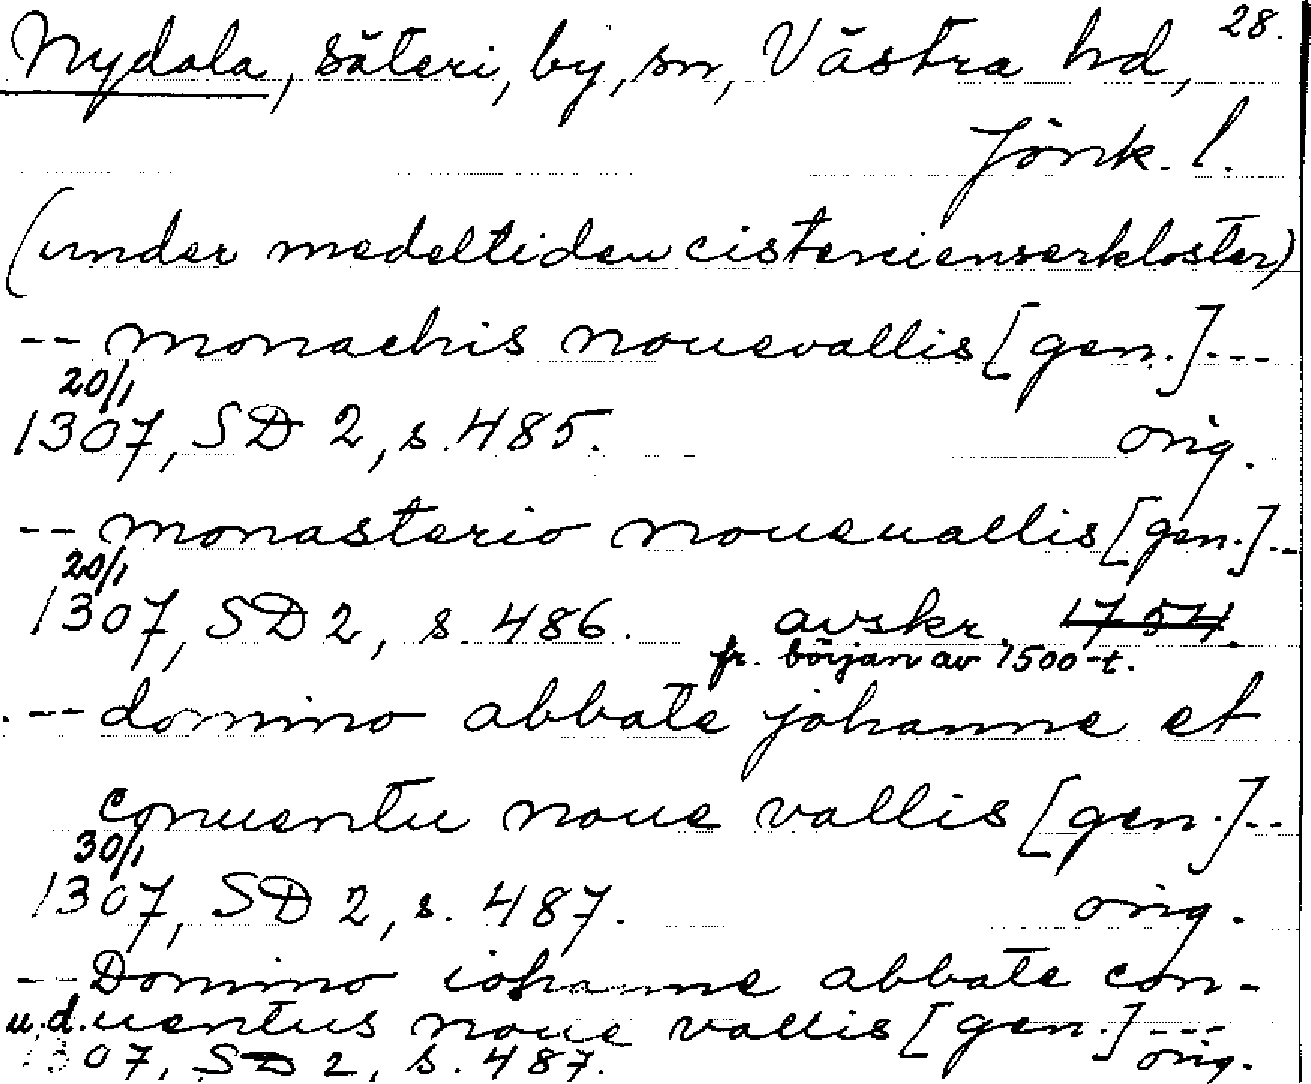 28.
Nydala, säteri, by, sn, Västra hd,
Jönk. l.
(under medeltiden cistercienserkloster)
-- monachis nouevallis [gen.] ---
20/1
1307, SD 2, s. 485. orig.
-- monasterio noueuallis [gen.] --
20/1
1307, SD 2, s. 486. avskr. 1754.
fr. början av 1500-t.
-- domino abbate johanne et
conuentu noue vallis [gen.] --
30/1
1307, SD 2, s. 487. orig.
-- Domino iohanne abbate con-
u.d. uentus noue vallis [gen.] ---
1307, SD 2, s. 487. orig.